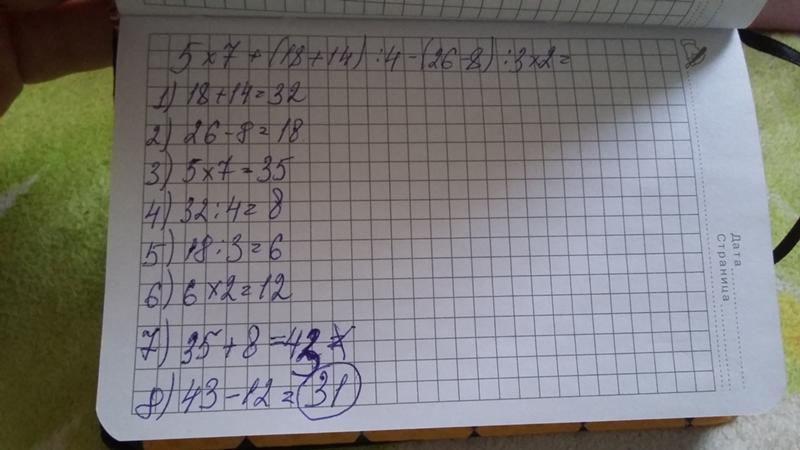 5×7+(18+14):4-(26-8):3×2=
1) 18+14=32
2) 26-8=18
3) 5×7=35
4) 32:4=8
5) 18:3=6
6) 6×2=12
7) 35+8=43
8) 43-12=31
Дата
Страница